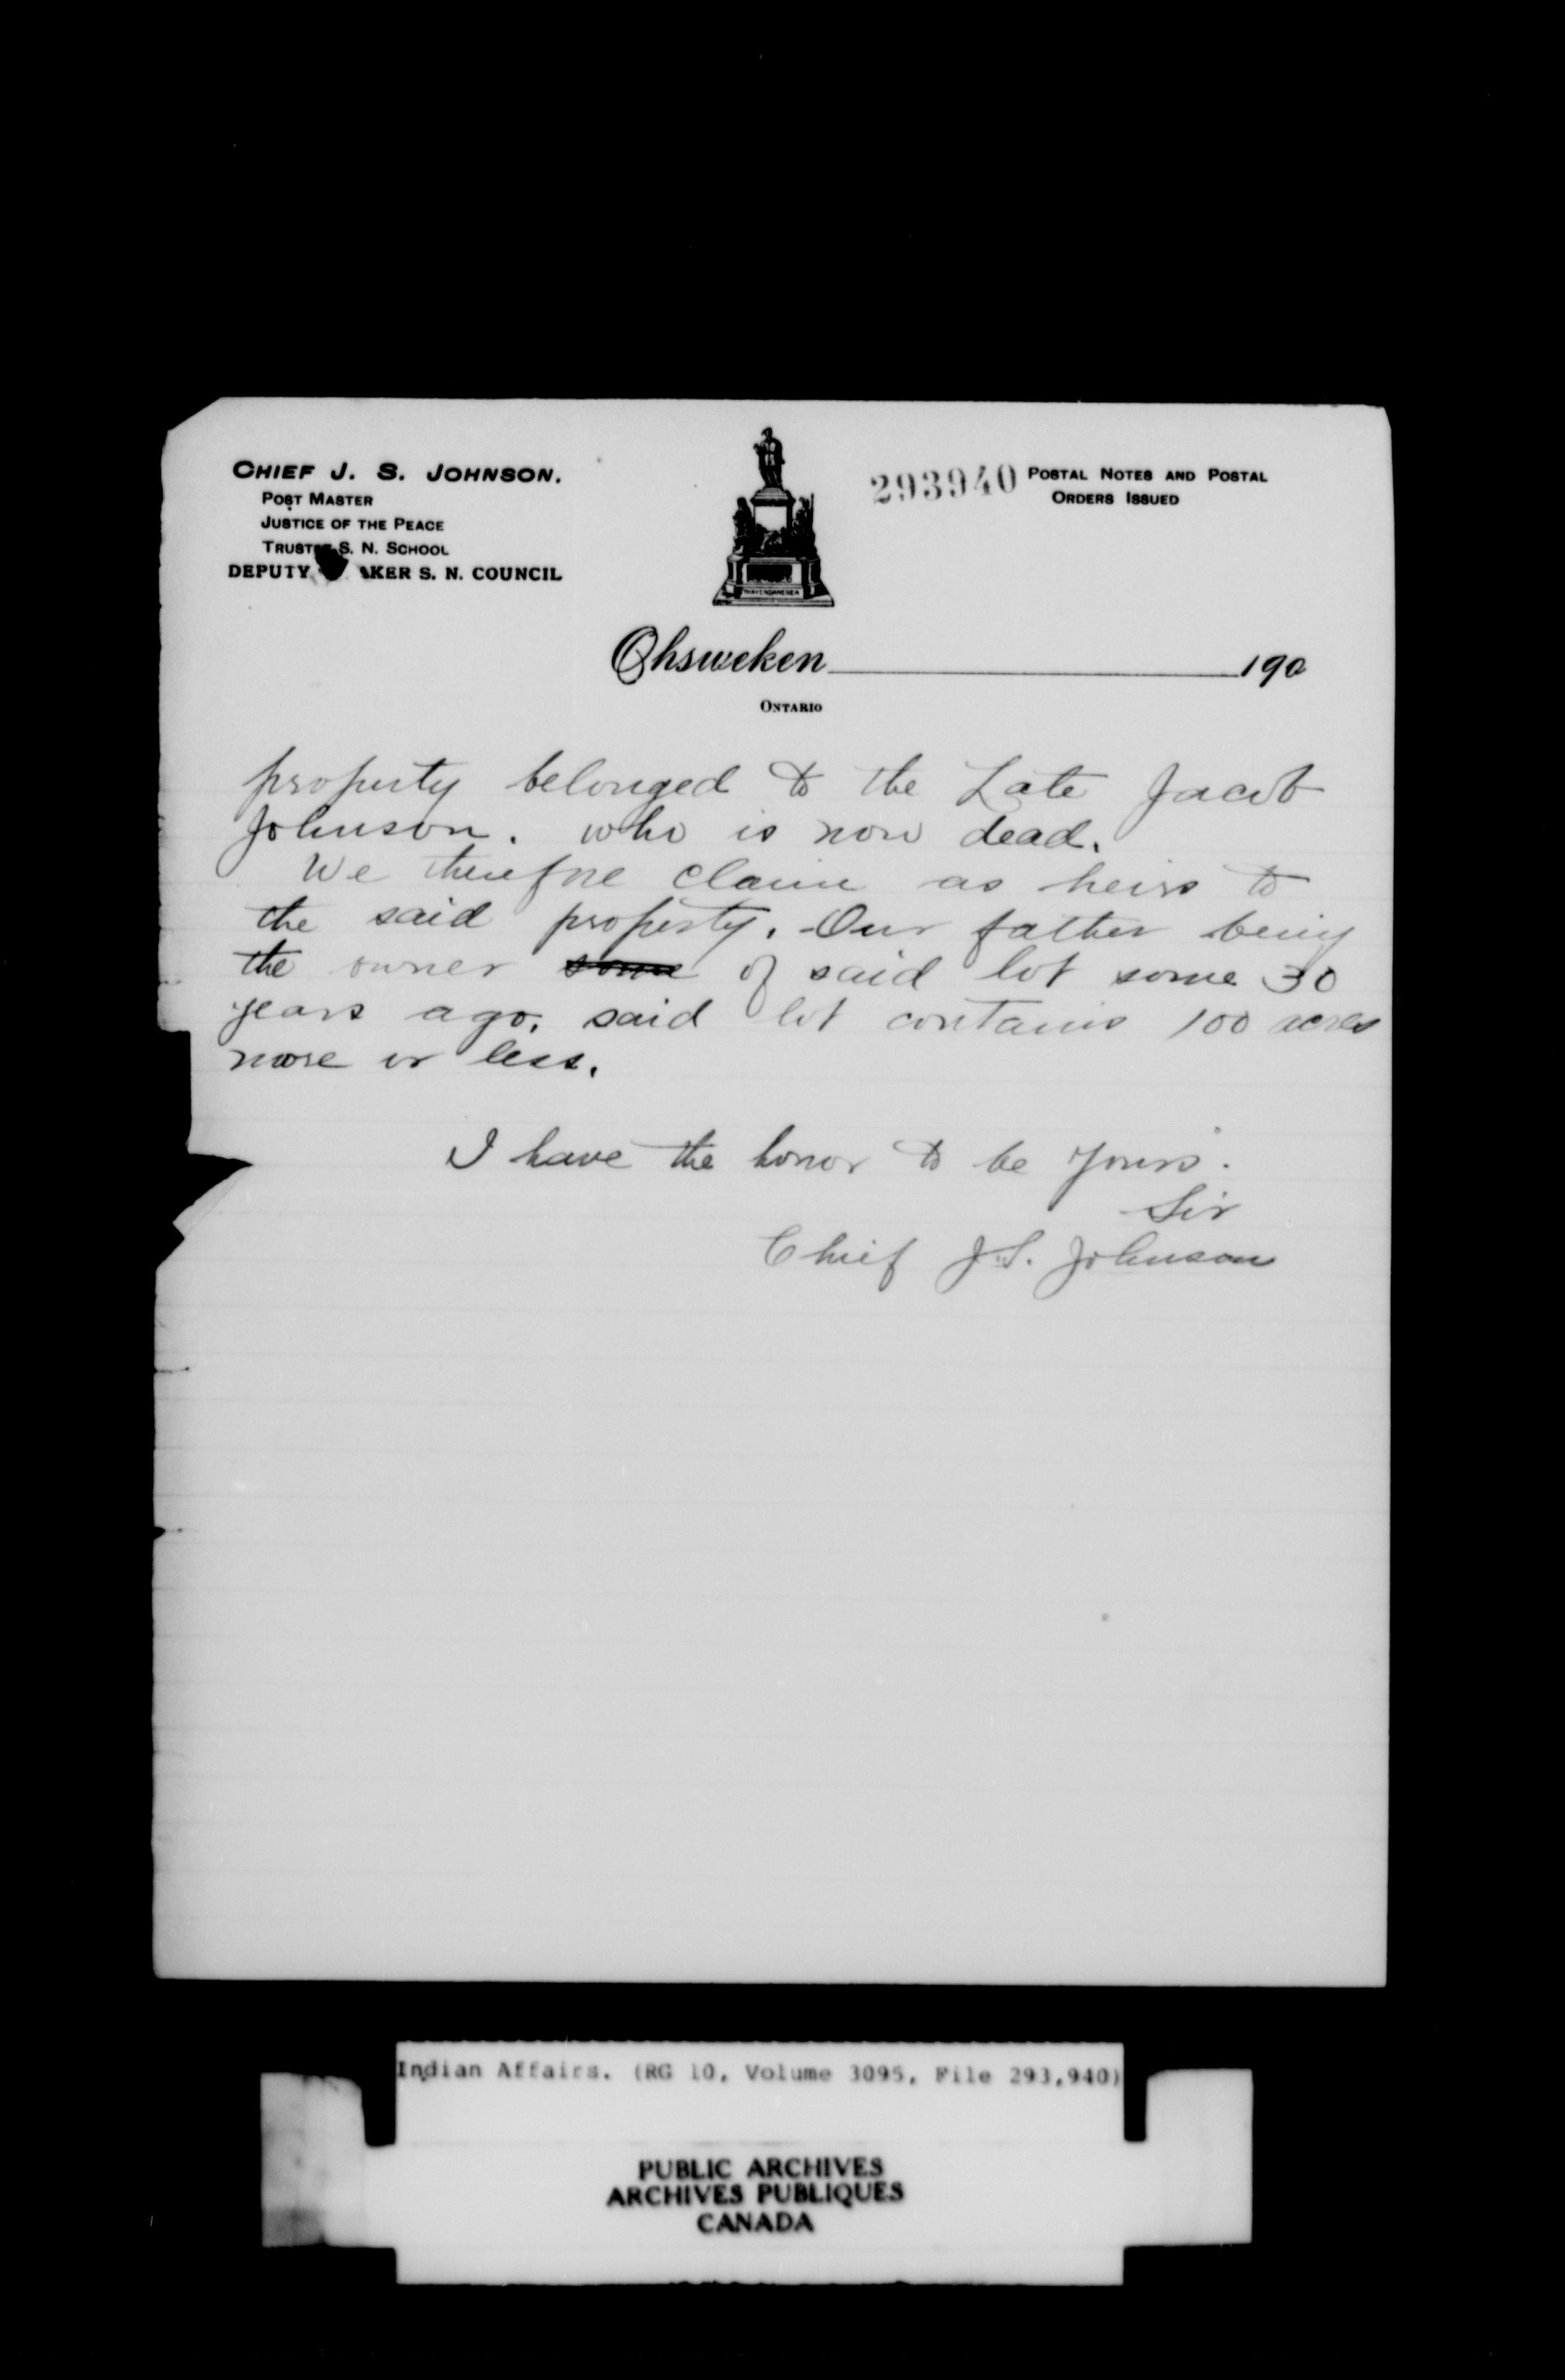 CHIEF J. S. JOHNSON.
POST MASTER
JUSTICE OF THE PEACE
TRUSTEE S. N. SCHOOL
DEPUTY AKER S. N. COUNCIL
293940
POSTAL NOTES AND POSTAL
ORDERS ISSUED
THAYENDANEGEA
Ohsweken 190
ONTARIO
property belonged to the Late Jacob
Johnson. who is now dead.
We therefore claim as heirs to
the said property. Our father being
the owner some of said lot some 30
years ago. said lot contains 100 acres
more or less.
I have the honor to be yours.
Sir
Chief J.S. Johnson
Indian Affairs. (RG 10, Volume 3095, File 293,940)
PUBLIC ARCHIVES
ARCHIVES PUBLIQUES
CANADA